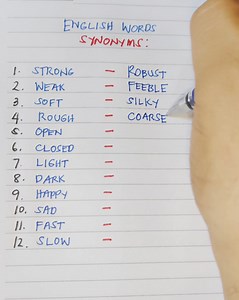 ENGLISH WORDS
SYNONYMS:
1. STRONG – ROBUST
2. WEAK – FEEBLE
3. SOFT – SILKY
4. ROUGH – COARSE
5. OPEN –
6. CLOSED –
7. LIGHT –
8. DARK –
9. HAPPY –
10. SAD –
11. FAST –
12. SLOW –